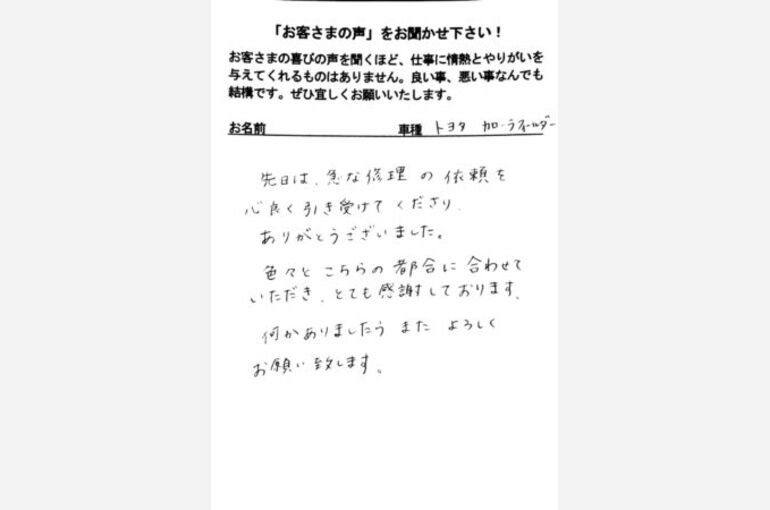 「お客さまの声」をお聞かせ下さい！
お客さまの喜びの声を聞くほど、仕事に情熱とやりがいを
与えてくれるものはありません。良い事、悪い事なんでも
結構です。ぜひ宜しくお願いいたします。
お名前 車種 トヨタ カローラフィールダー
先日は、急な修理の依頼を
心良く引き受けてくださり、
ありがとうございました。
色々と こちらの都合に合わせて
いただき、とても感謝しております。
何かありましたら また よろしく
お願い致します。